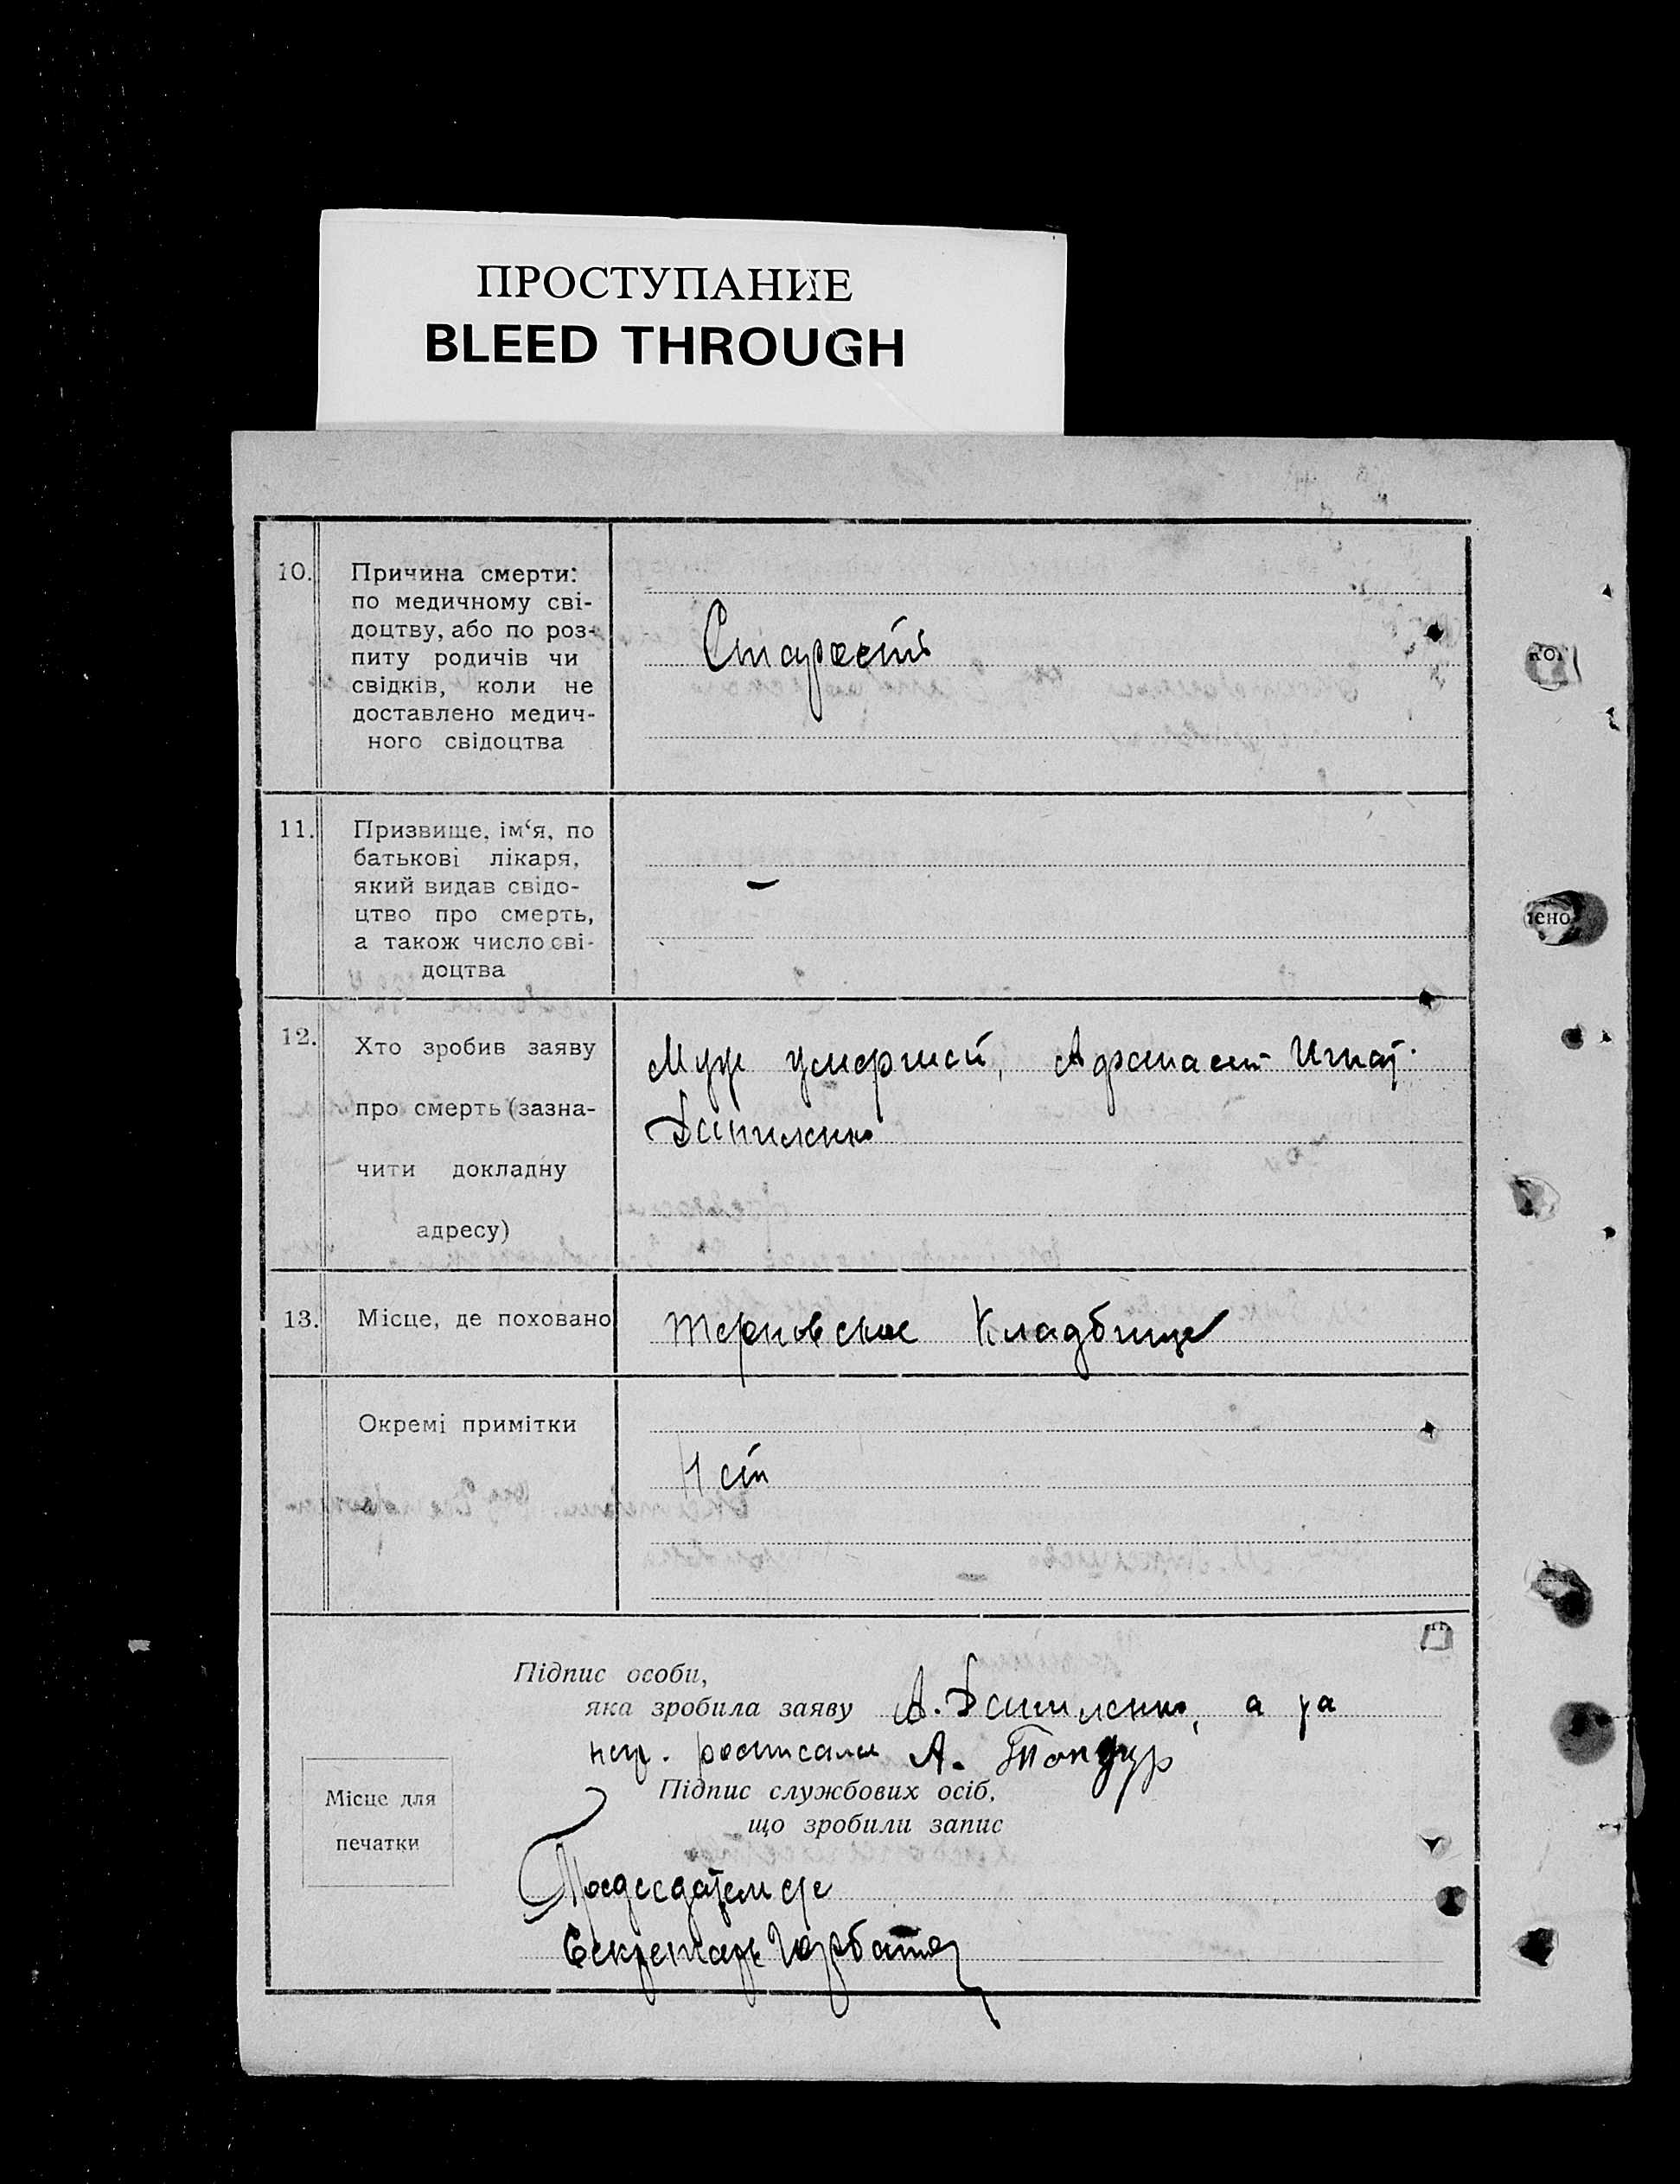 ПРОСТУПАНИЕ
BLEED THROUGH
10.
Причина смерти:
по медичному сві-
доцтву, або по роз-
питу родичів чи
свідків, коли не
доставлено медич-
ного свідоцтва
Старость
11.
Призвище, ім‘я, по
батькові лікаря,
який видав свідо-
цтво про смерть,
а також число сві-
доцтва
–
12.
Хто зробив заяву
про смерть (зазна-
чити докладну
адресу)
Муж умершей, Афанасий Игнат.
Даниленко
13.
Місце, де поховано
Терновское Кладбище
Окремі примітки
Нет
Підпис особи,
яка зробила заяву А. Даниленко, а за
нер. росписался А.
Підпис службових осіб,
що зробили запис
Місце для
печатки
Председатель
Секретарь
кої
лено